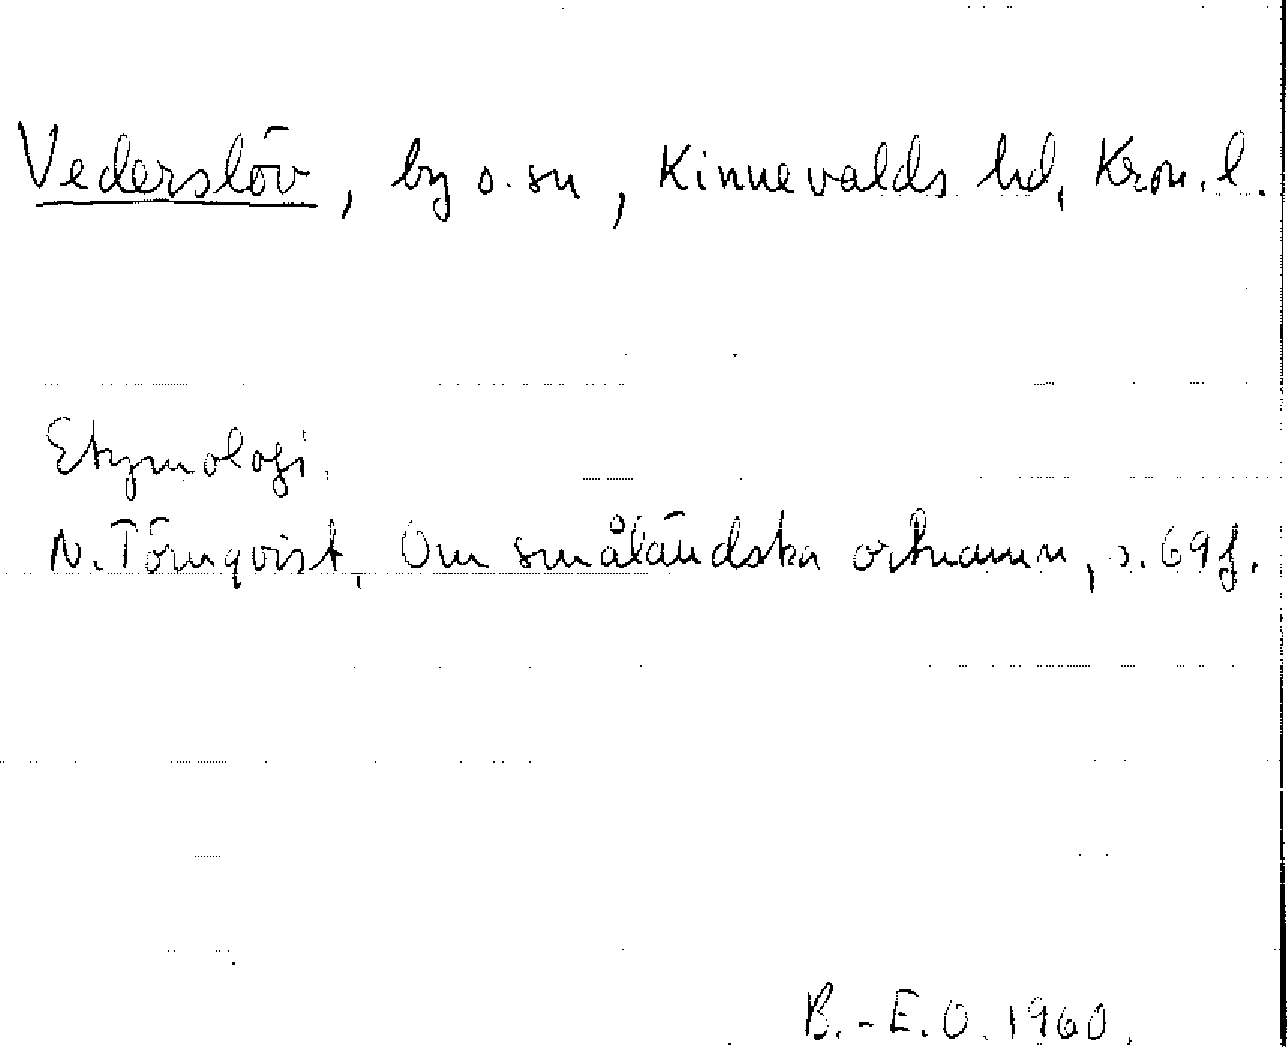 Vederslöv, by o. sn, Kinnevalds hd, Kron. l.
Etymologi.
N. Törnqvist, Om småländska ortnamn, s. 69 f.
B.-E.O. 1960.